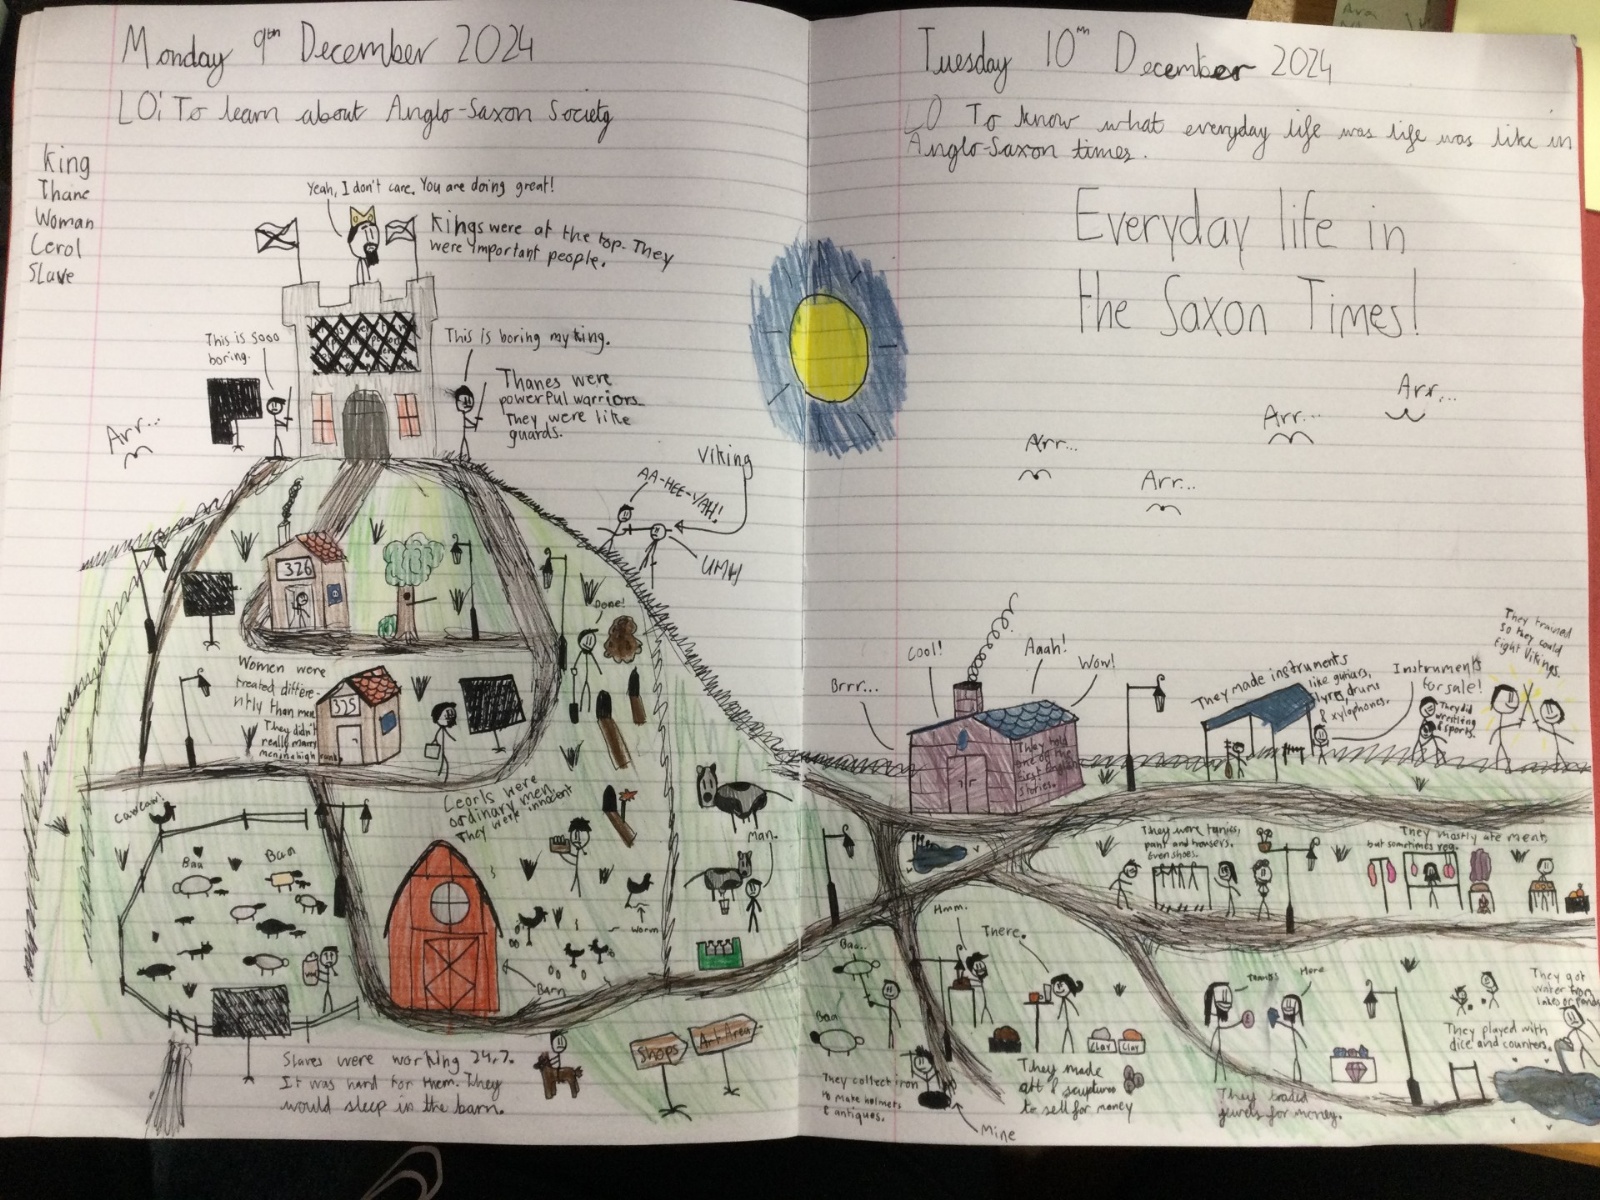 Monday 9th December 2024
LO: To learn about Anglo-Saxon Society
King
Thane
Woman
Cerol
Slave
Yeah, I don't care. You are doing great!
Kings were at the top. They
were important people.
This is sooo
boring.
This is boring my king.
Thanes were
powerful warriors.
They were like
guards.
Arr...
Viking
AA-HEE-YAH!
UMH
326
Done!
Women were
treated differe-
ntly than men.
They didn't
really marry
men in a high rank.
325
Leorls were
ordinary men
They were innocent
Cawcaw!
Baa
Baa
Man.
Worm
Barn
Slaves were working 24,7.
It was hard for them. They
would sleep in the barn.
Shops
Art Area
Tuesday 10th December 2024
LO To know what everyday life was life was like in
Anglo-Saxon times.
Everyday life in
the Saxon Times!
Arr...
Arr...
Arr...
Arr...
Cool!
Aaah!
Wow!
Brrr...
They told
one of the
first English
stories.
They made instruments
like guitars,
lyre drums
& xylophones.
Instruments
for sale!
They did
wrestling
& sports.
They trained
so they could
fight Vikings.
They wore tunics,
pant and trousers.
Even shoes.
They mostly ate meat,
but sometimes veg.
Baa..
Baa
Hmm.
There.
CLAY
CLAY
They collect iron
to make helmets
& antiques.
Mine
They made
art & sculptures
to sell for money
Here
They traded
jewels for money.
They played with
dice and counters.
They got
water from
lakes or ponds